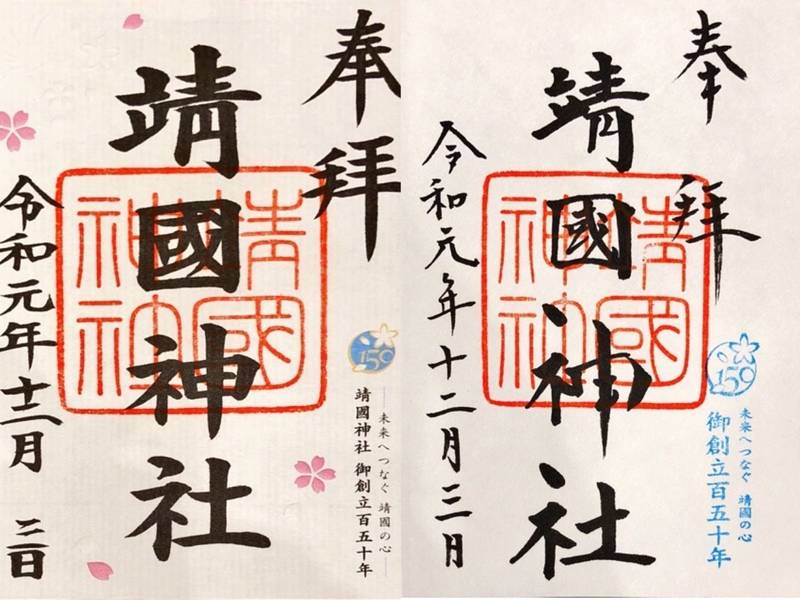 奉拝
靖國神社
靖國神社
令和元年十二月 日
150
未来へつなぐ 靖國の心
靖國神社 御創立百五十年
奉拝
靖國神社
靖國神社
令和元年十二月三日
150
未来へつなぐ 靖國の心
御創立百五十年